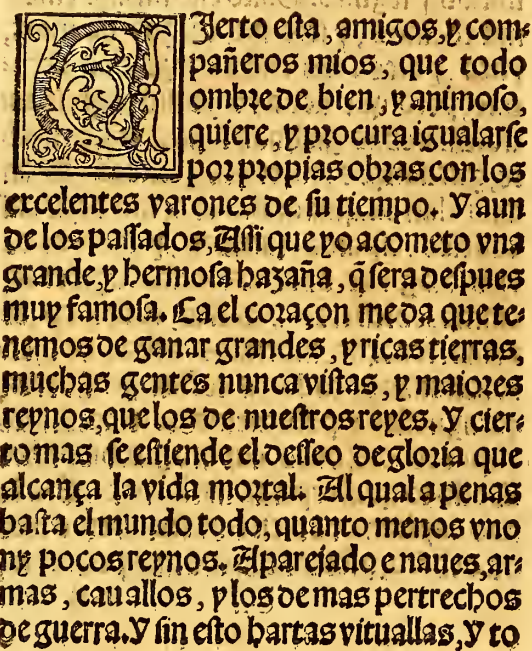 CJerto esta, amigos, y com-
pañeros mios, que todo
ombre de bien, y animoso,
quiere, y procura igualarse
por propias obras con los
excelentes varones de su tiempo. Y aun
de los passados. Assi que yo acometo vna
grande, y hermosa hazaña, q̃ sera despues
muy famosa. Ca el coraçon me da que te-
nemos de ganar grandes, y ricas tierras,
muchas gentes nunca vistas, y maiores
reynos, que los de nuestros reyes. Y cier-
to mas se estiende el desseo de gloria que
alcança la vida mortal. Al qual apenas
basta el mundo todo, quanto menos vno
ny pocos reynos. Aparejado e naues, ar-
mas, cauallos, y los demas pertrechos
de guerra. Y sin esto hartas vituallas, Y to